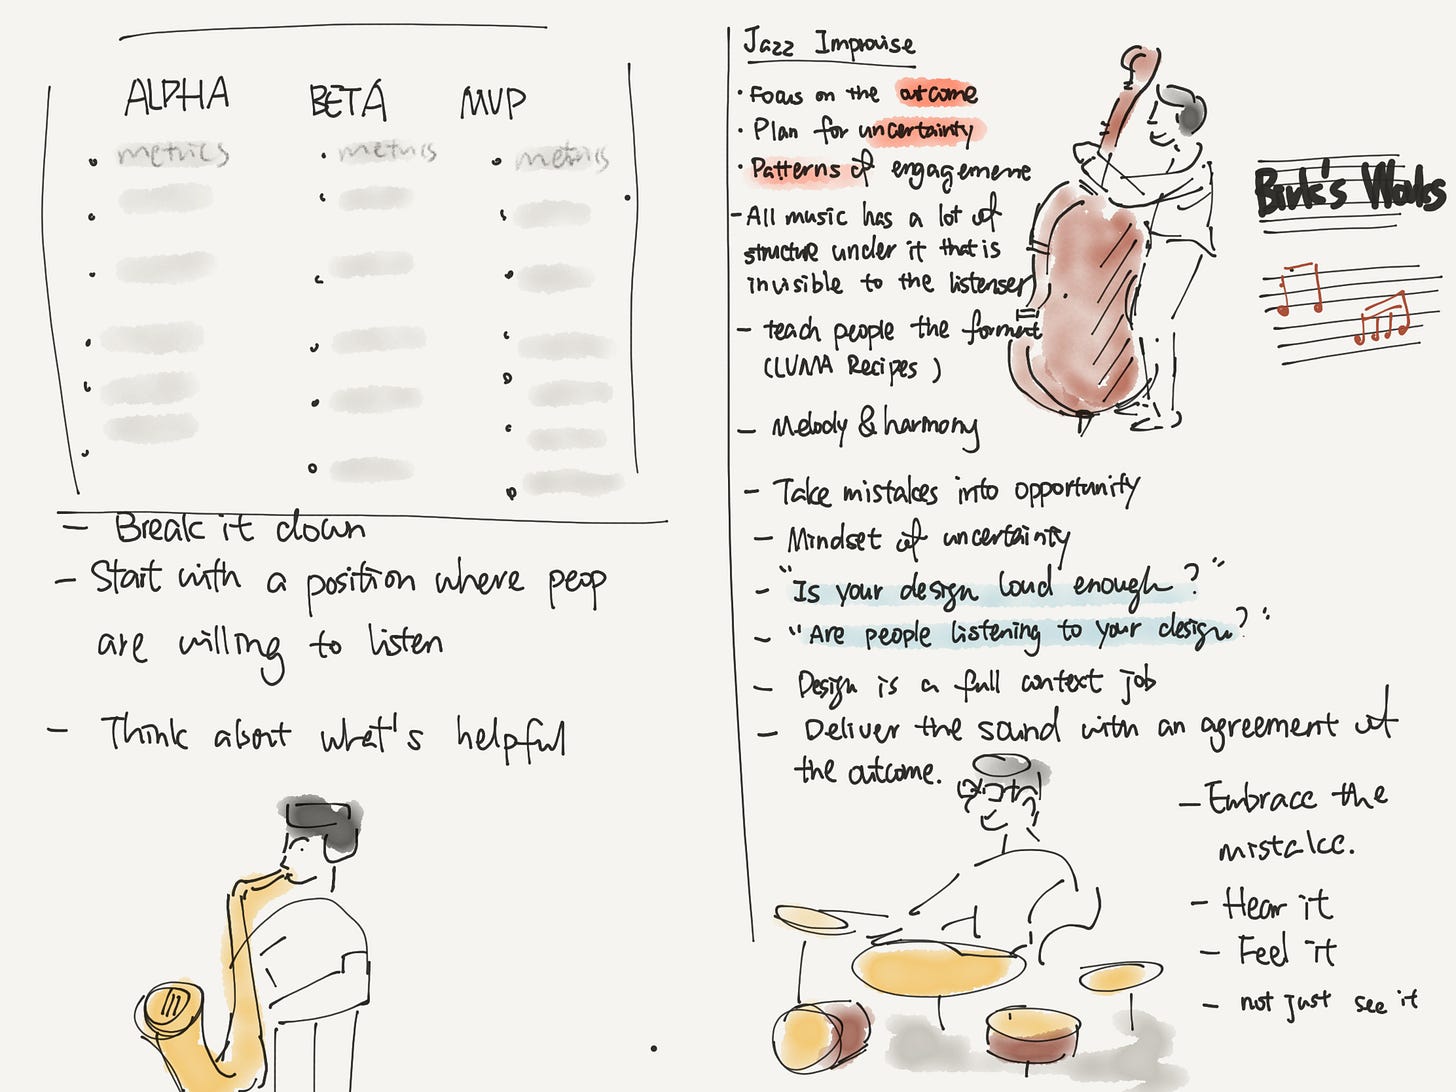 ALPHA BETA MVP
metrics metrics metrics
- Break it down
- Start with a position where peop
are willing to listen
- Think about what's helpful
Jazz Improvise
• Focus on the outcome
• Plan for uncertainty
• Patterns of engagement
- All music has a lot of
structure under it that is
invisible to the listenser
- teach people the format
(LUMA Recipes)
- Melody & harmony
- Take mistakes into opportunity
- Mindset of uncertainty
- "Is your design loud enough?"
- "Are people listening to your design?"
- Design is a full context job
- Deliver the sound with an agreement of
the outcome.
- Embrace the
mistake.
- Hear it
- Feel it
- not just see it
Birk's Works